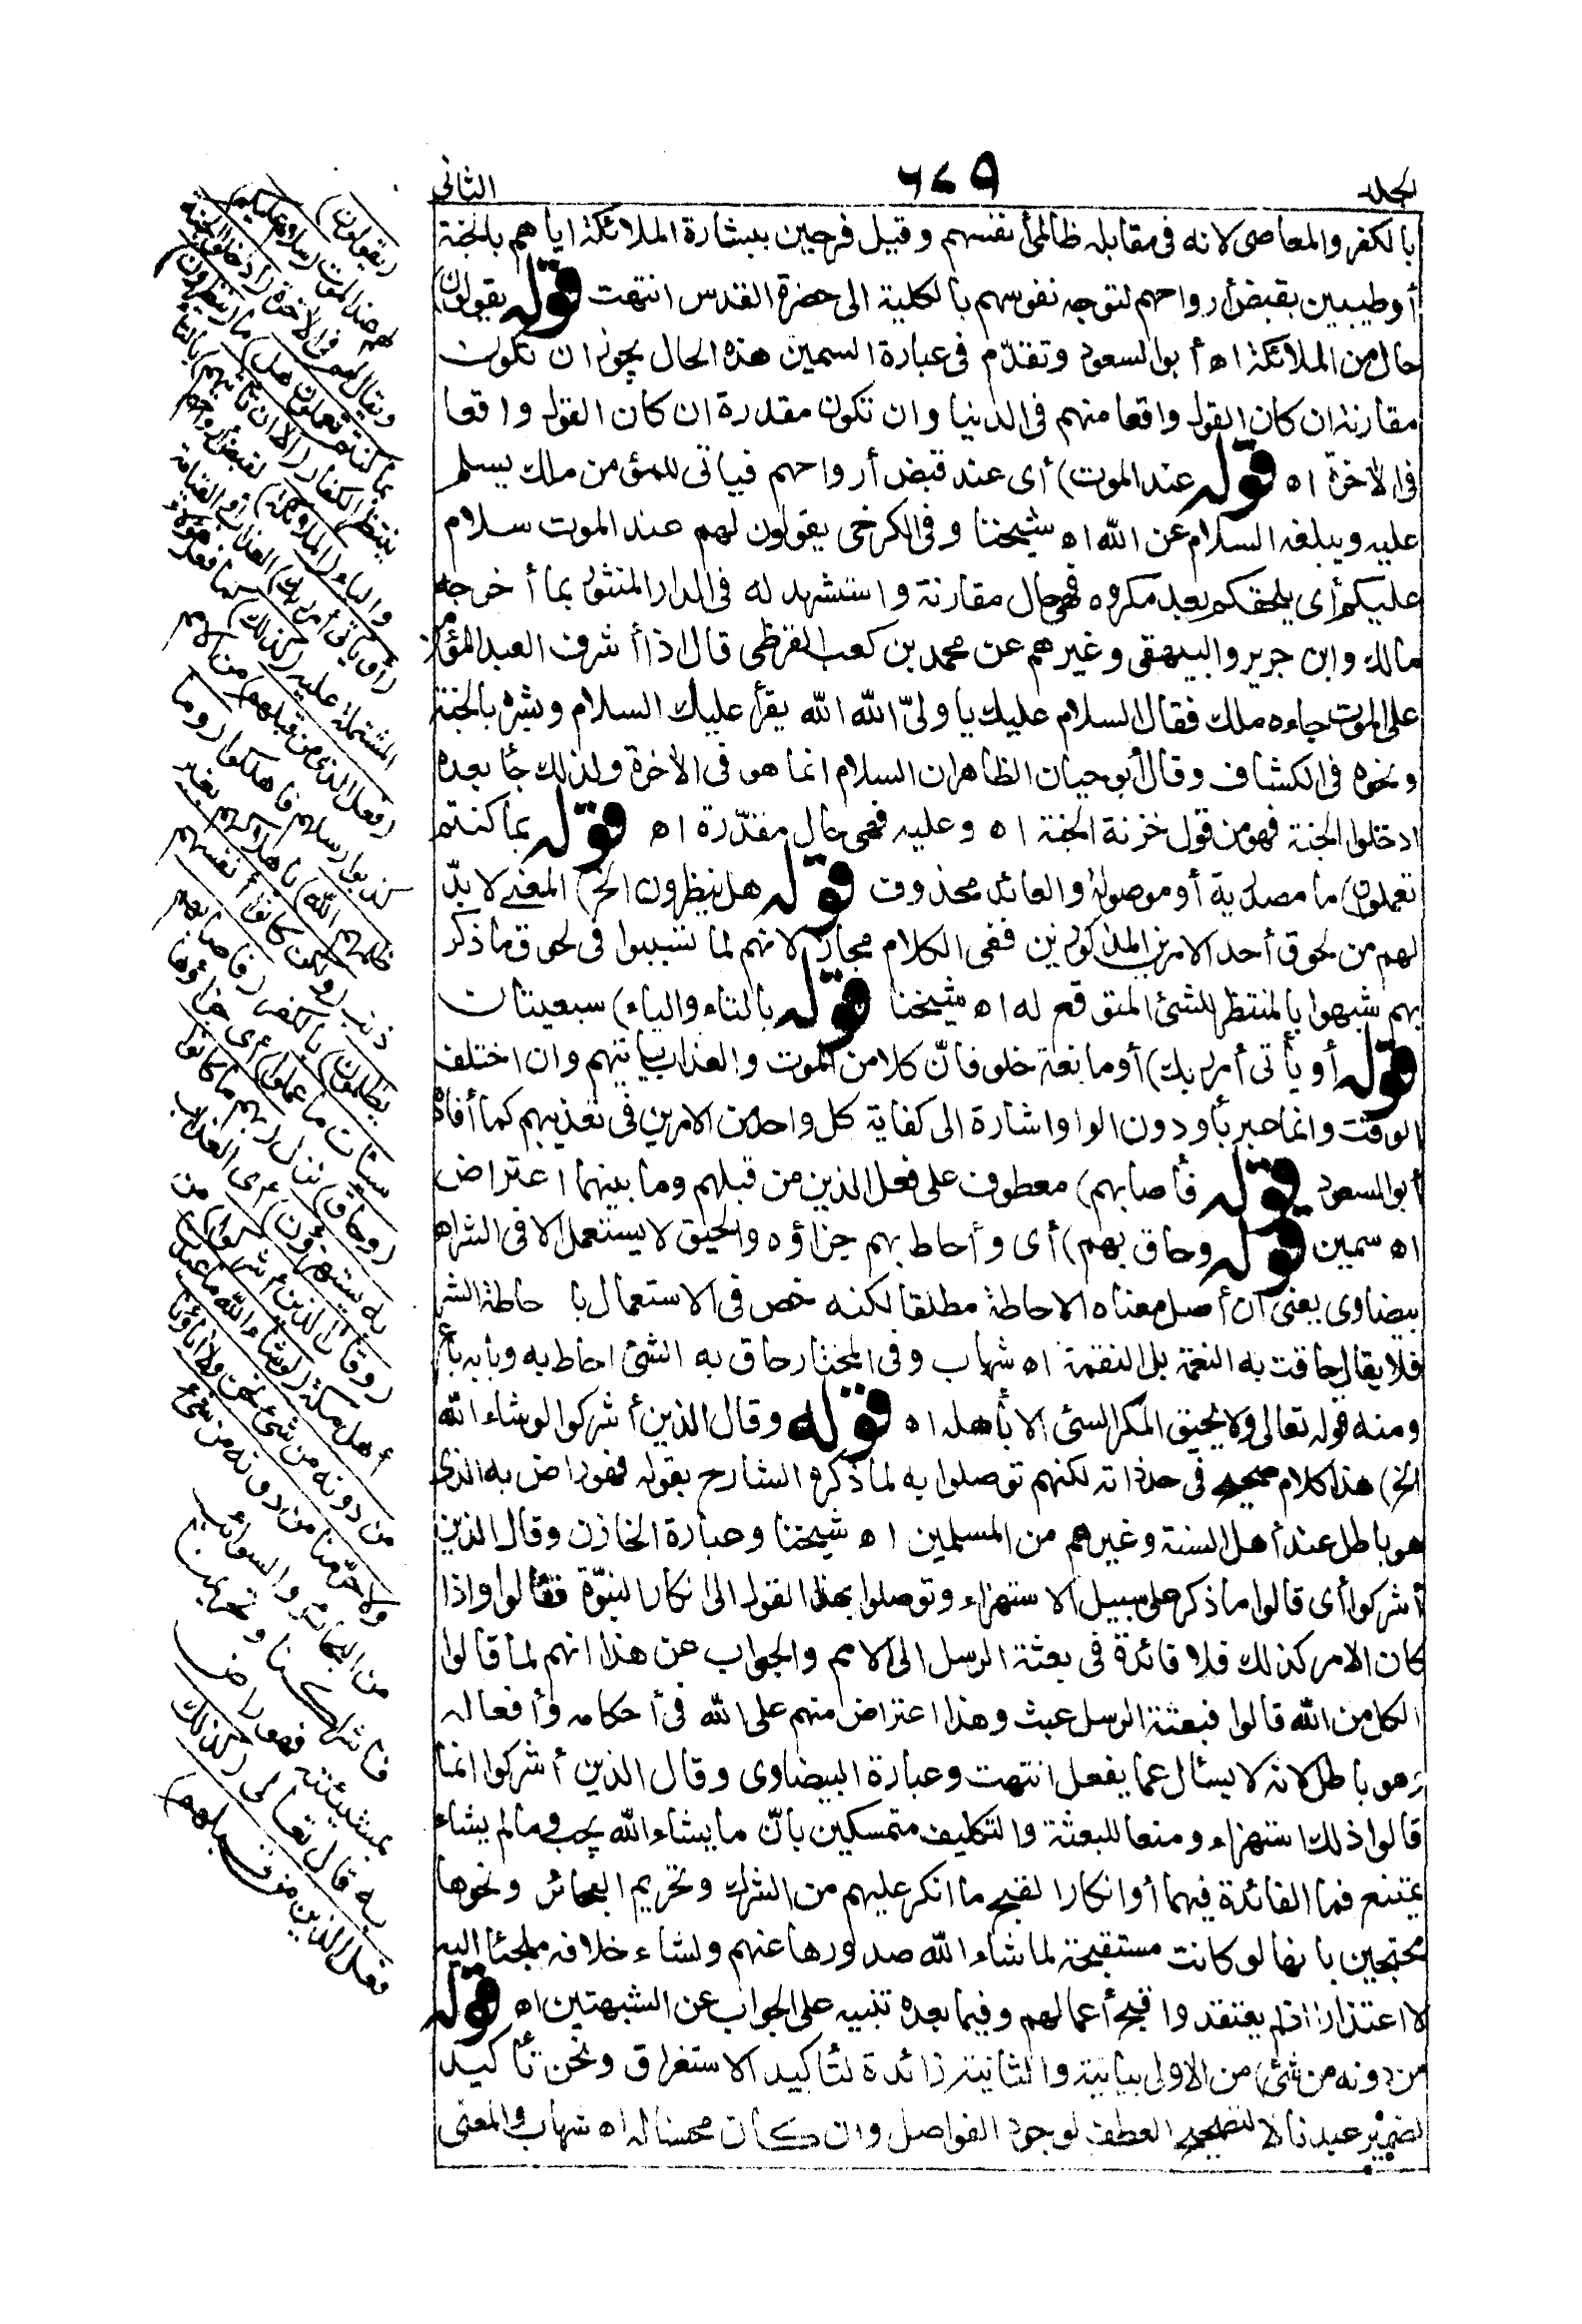 الجلد ٦٧٩ الثانى
بالكفر والمعاصى لانه فى مقابلة ظالمى أنفسهم وقيل فرحين ببشارة الملائكة اياهم بالجنة
أو طيبين بقبض أرواحهم لتوجه نفوسهم بالكلية الى حضرة القدس انتهت قوله يقولون)
حال من الملائكة اه أبو السعود وتقدّم فى عبارة السمين هذه الحال يجوز ان تكون
مقارنة ان كان القول واقعا منهم فى الدنيا وان تكون مقدرة ان كان القول واقعا
فى الاخرة اه قوله عند الموت) أى عند قبض أرواحهم فيأتى للمؤمن ملك يسلم
عليه ويبلغه السلام عن الله اه شيخنا وفى الكرخى يقولون لهم عند الموت سلام
عليكم أى يلحقكم بعد مكروه فهى حال مقارنة واستشهد له فى الدار المنثور بما أخرجه
مالك وابن جرير والبيهقى وغيرهم عن محمد بن كعب القرظى قال اذا أشرف العبد المؤمن
على الموت جاءه ملك فقال السلام عليك يا ولىّ الله الله يقرأ عليك السلام وبشره بالجنة
ونحوه فى الكشاف وقال أبو حيان الظاهر ان السلام انما هو فى الاخرة ولذلك جاء بعده
ادخلوا الجنة فهو من قول خزنة الجنة اه وعليه فهى حال مقدّرة اه قوله بما كنتم
تعملون) ما مصدرية أو موصولة والعائد محذوف قوله هل ينظرون الخ) المعنى لا بدّ
لهم من لحوق أحد الامرين المذكورين ففى الكلام مجاز لانهم لما تسببوا فى لحوق ما ذكر
بهم شبهوا بالمنتظر للشئ المتوقع له اه شيخنا قوله بالتاء والياء) سبعيتان
قوله أو يأتى أمر ربك) أو مانعة خلو فانّ كلا من الموت والعذاب يأتيهم وان اختلف
الوقت وانما عبر بأو دون الواو اشارة الى كفاية كل واحد من الامرين فى تعذيبهم كما أفاده
أبو السعود قوله فأصابهم) معطوف على فعل الذين من قبلهم وما بينهما اعتراض
اه سمين قوله وحاق بهم) أى وأحاط بهم جزاؤه والحيق لا يستعمل الا فى الشر اه
بيضاوى يعنى أن أصل معناه الاحاطة مطلقا لكنه خص فى الاستعمال با حاطة الشر
فلا يقال حاقت به النعمة بل النقمة اه شهاب وفى المختار حاق به الشئ احاط به وبابه باع
ومنه قوله تعالى ولا يحيق المكر السئ الا بأهله اه قوله وقال الذين أشركوا لو شاء الله
الخ) هذا كلام صحيح فى حد ذاته لكنهم توصلوا به لما ذكره الشارح بقوله فهو راض به الذى
هو باطل عند أهل السنة وغيرهم من المسلمين اه شيخنا وعبارة الخازن وقال الذين
أشركوا أى قالوا ما ذكر على سبيل الاستهزاء وتوصلوا بهذا القول الى انكار النبوّة فقالوا واذا
كان الامر كذلك فلا فائدة فى بعثة الرسل الى الامم والجواب عن هذا انهم لما قالوا
الكل من الله قالوا فبعثة الرسل عبث وهذا اعتراض منهم على الله فى أحكامه وأفعاله
وهو باطل لانه لا يسأل عما يفعل انتهت وعبارة البيضاوى وقال الذين أشركوا انما
قالوا ذلك استهزاء ومنعا للبعثة والتكليف متمسكين بانّ ما يشاء الله يجب وما لم يشاء
يمتنع فما الفائدة فيهما أو انكارا لقبح ما انكر عليهم من الشرك وتحريم البحائر ونحوها
محتجين بانها لو كانت مستقبحة لما شاء الله صدورها عنهم ولشاء خلافه ملجئا اليه
لا اعتذارا اذ لم يعتقدوا قبح أعمالهم وفيما بعده تنبيه على الجواب عن الشبهتين اه قوله
من دونه من شئ) من الاولى بيانية والثانية زائدة لتأكيد الاستغراق ونحن تأكيد
لضمير عبدنا لا لتصحيح العطف لوجود الفواصل وان كان محسنا له اه شهاب والمعنى
(يقولون)
لهم عند الموت (سلام عليكم)
ويقال لهم فى الاخرة (ادخلوا الجنة
بما كنتم تعملون هل) ما (ينظرون)
ينتظر الكفار (الا ان تأتيهم) بالتاء
والياء (الملائكة) لقبض أرواحهم
(أو يأتى أمر ربك) العذاب أو القيامة
المشتملة عليه (كذلك) كما فعل هؤلاء
(فعل الذين من قبلهم) من الامم
كذبوا رسلهم فاهلكوا (وما
ظلمهم الله) باهلاكهم بغير
ذنب (ولكن كانوا أنفسهم
يظلمون) بالكفر (فاصابهم
سيئات ما عملوا) أى جزاؤها
(وحاق) نزل (بهم ما كانوا
به يستهزؤن) أى العذاب
(وقال الذين أشركوا) من
أهل مكة (لو شاء الله ما عبدنا
من دونه من شئ نحن ولا آباؤنا
ولا حرّمنا من دونه من شئ)
من البحائر والسوائب
فاشراكنا وتحريمنا
بمشيئته فهو راض
به قال تعالى (كذلك
فعل الذين من قبلهم)